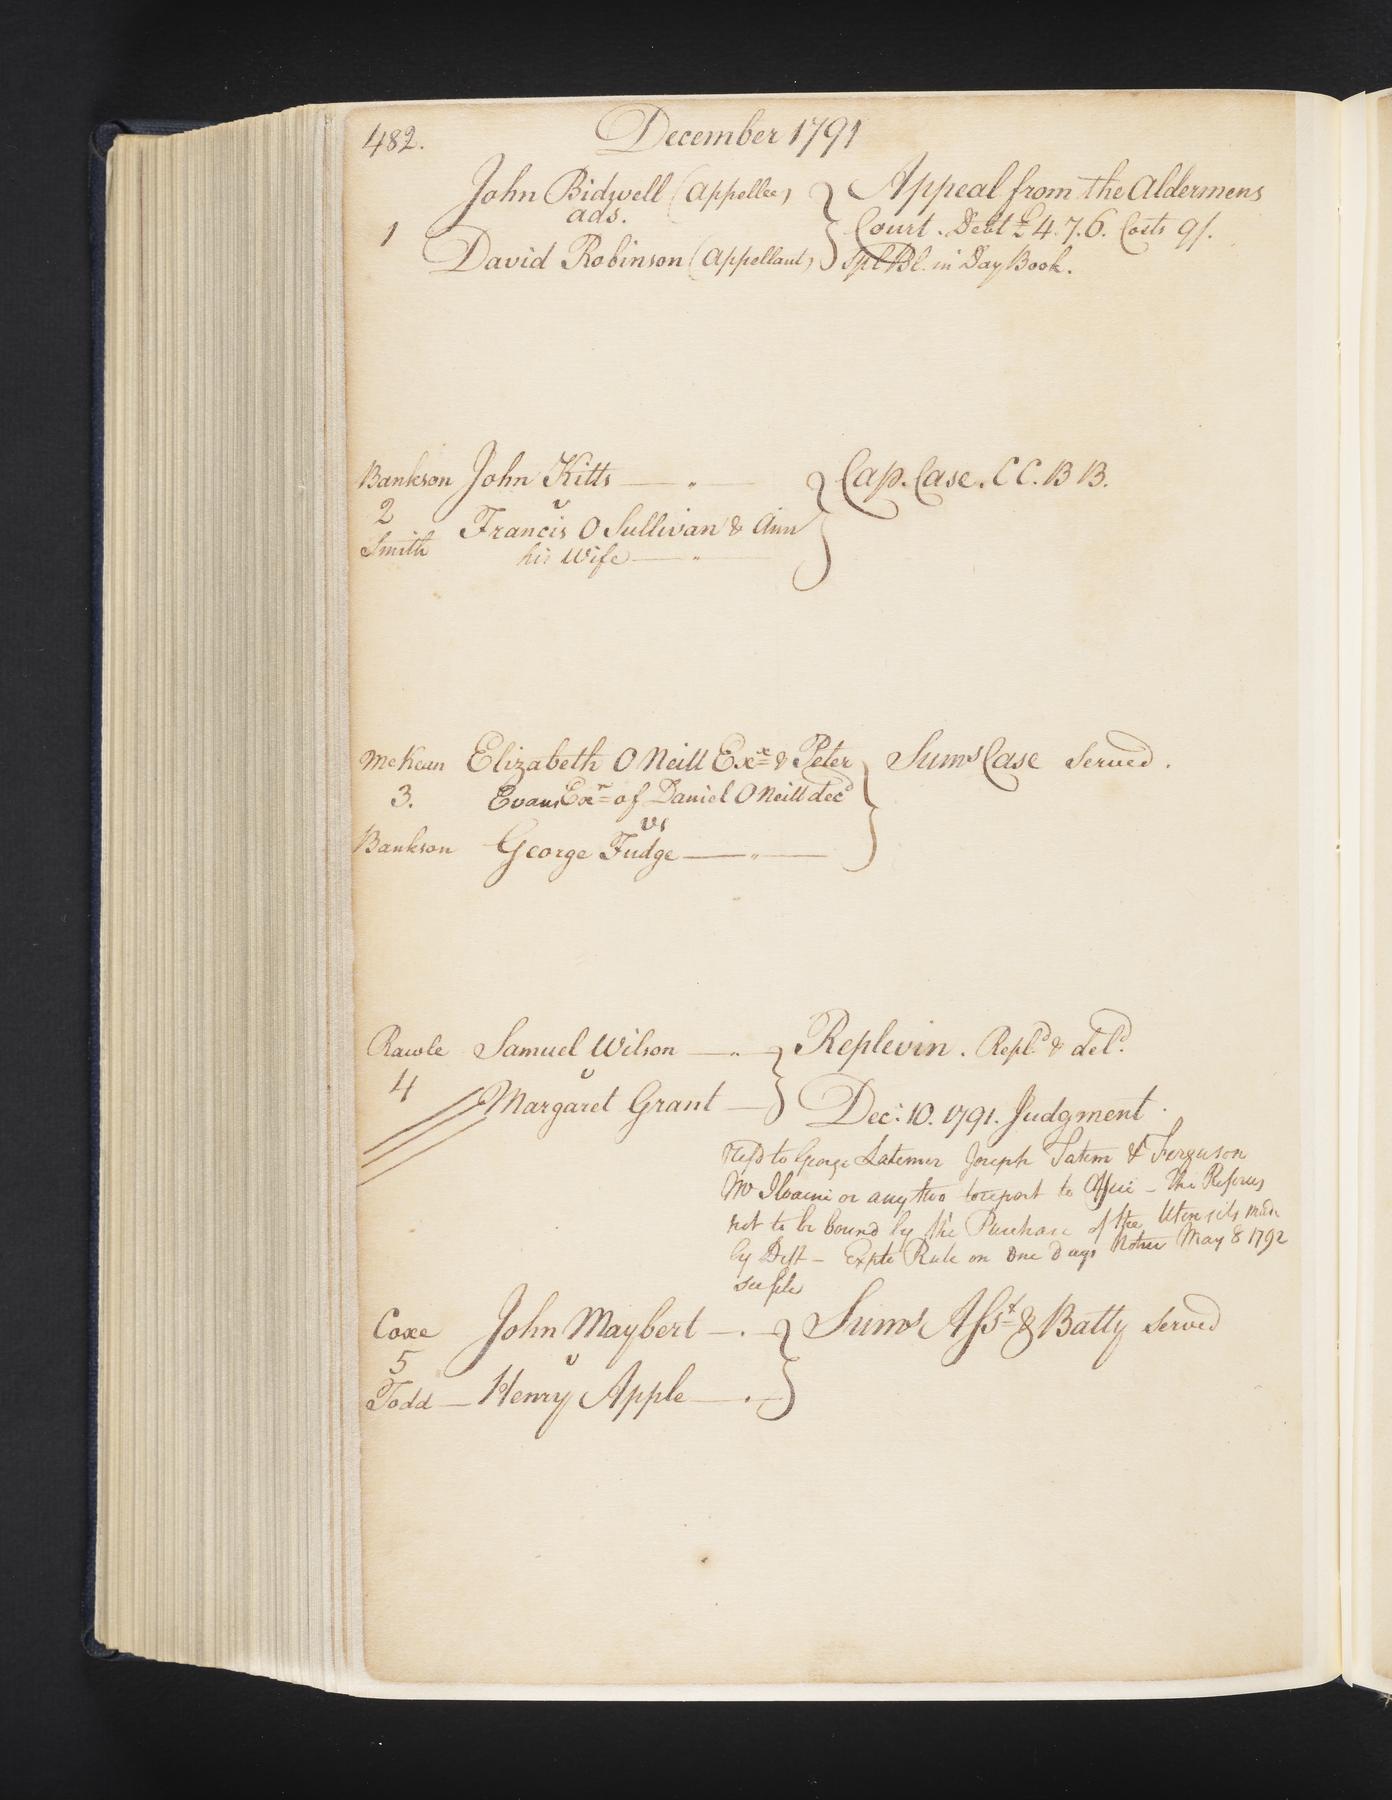 482. December 1791
John Bidwell (Appellee) Appeal from the Aldermens
ads. Court. Debt £4.7.6. Costs 9/.
1
David Robinson (Appellant) Spl Bl. in Day Book.
Bankson John Kitts Cap. Case. CC. BB.
2 v
Francis O Sullivan & Ann
Smith his Wife
McKean Elizabeth O Neill Exx & Peter Sums Case Served.
3. Evans Exr of Daniel O Neill decd
vs
Bankson George Fudge
Rawle Samuel Wilson Replevin. Repld & deld.
4 v
Margaret Grant Decr. 10. 1791. Judgment.
Refd to George Latimer Joseph Tatem & Ferguson
Mc Ilvaine or any two to report to Office - The Referees
not to be bound by the Purchase of the Utensils made
by Deft - Expte Rule on One Days Notice May 8 1792
see file
Coxe John Maybert Sums Asst & Batty Served
5 v
Todd Henry Apple